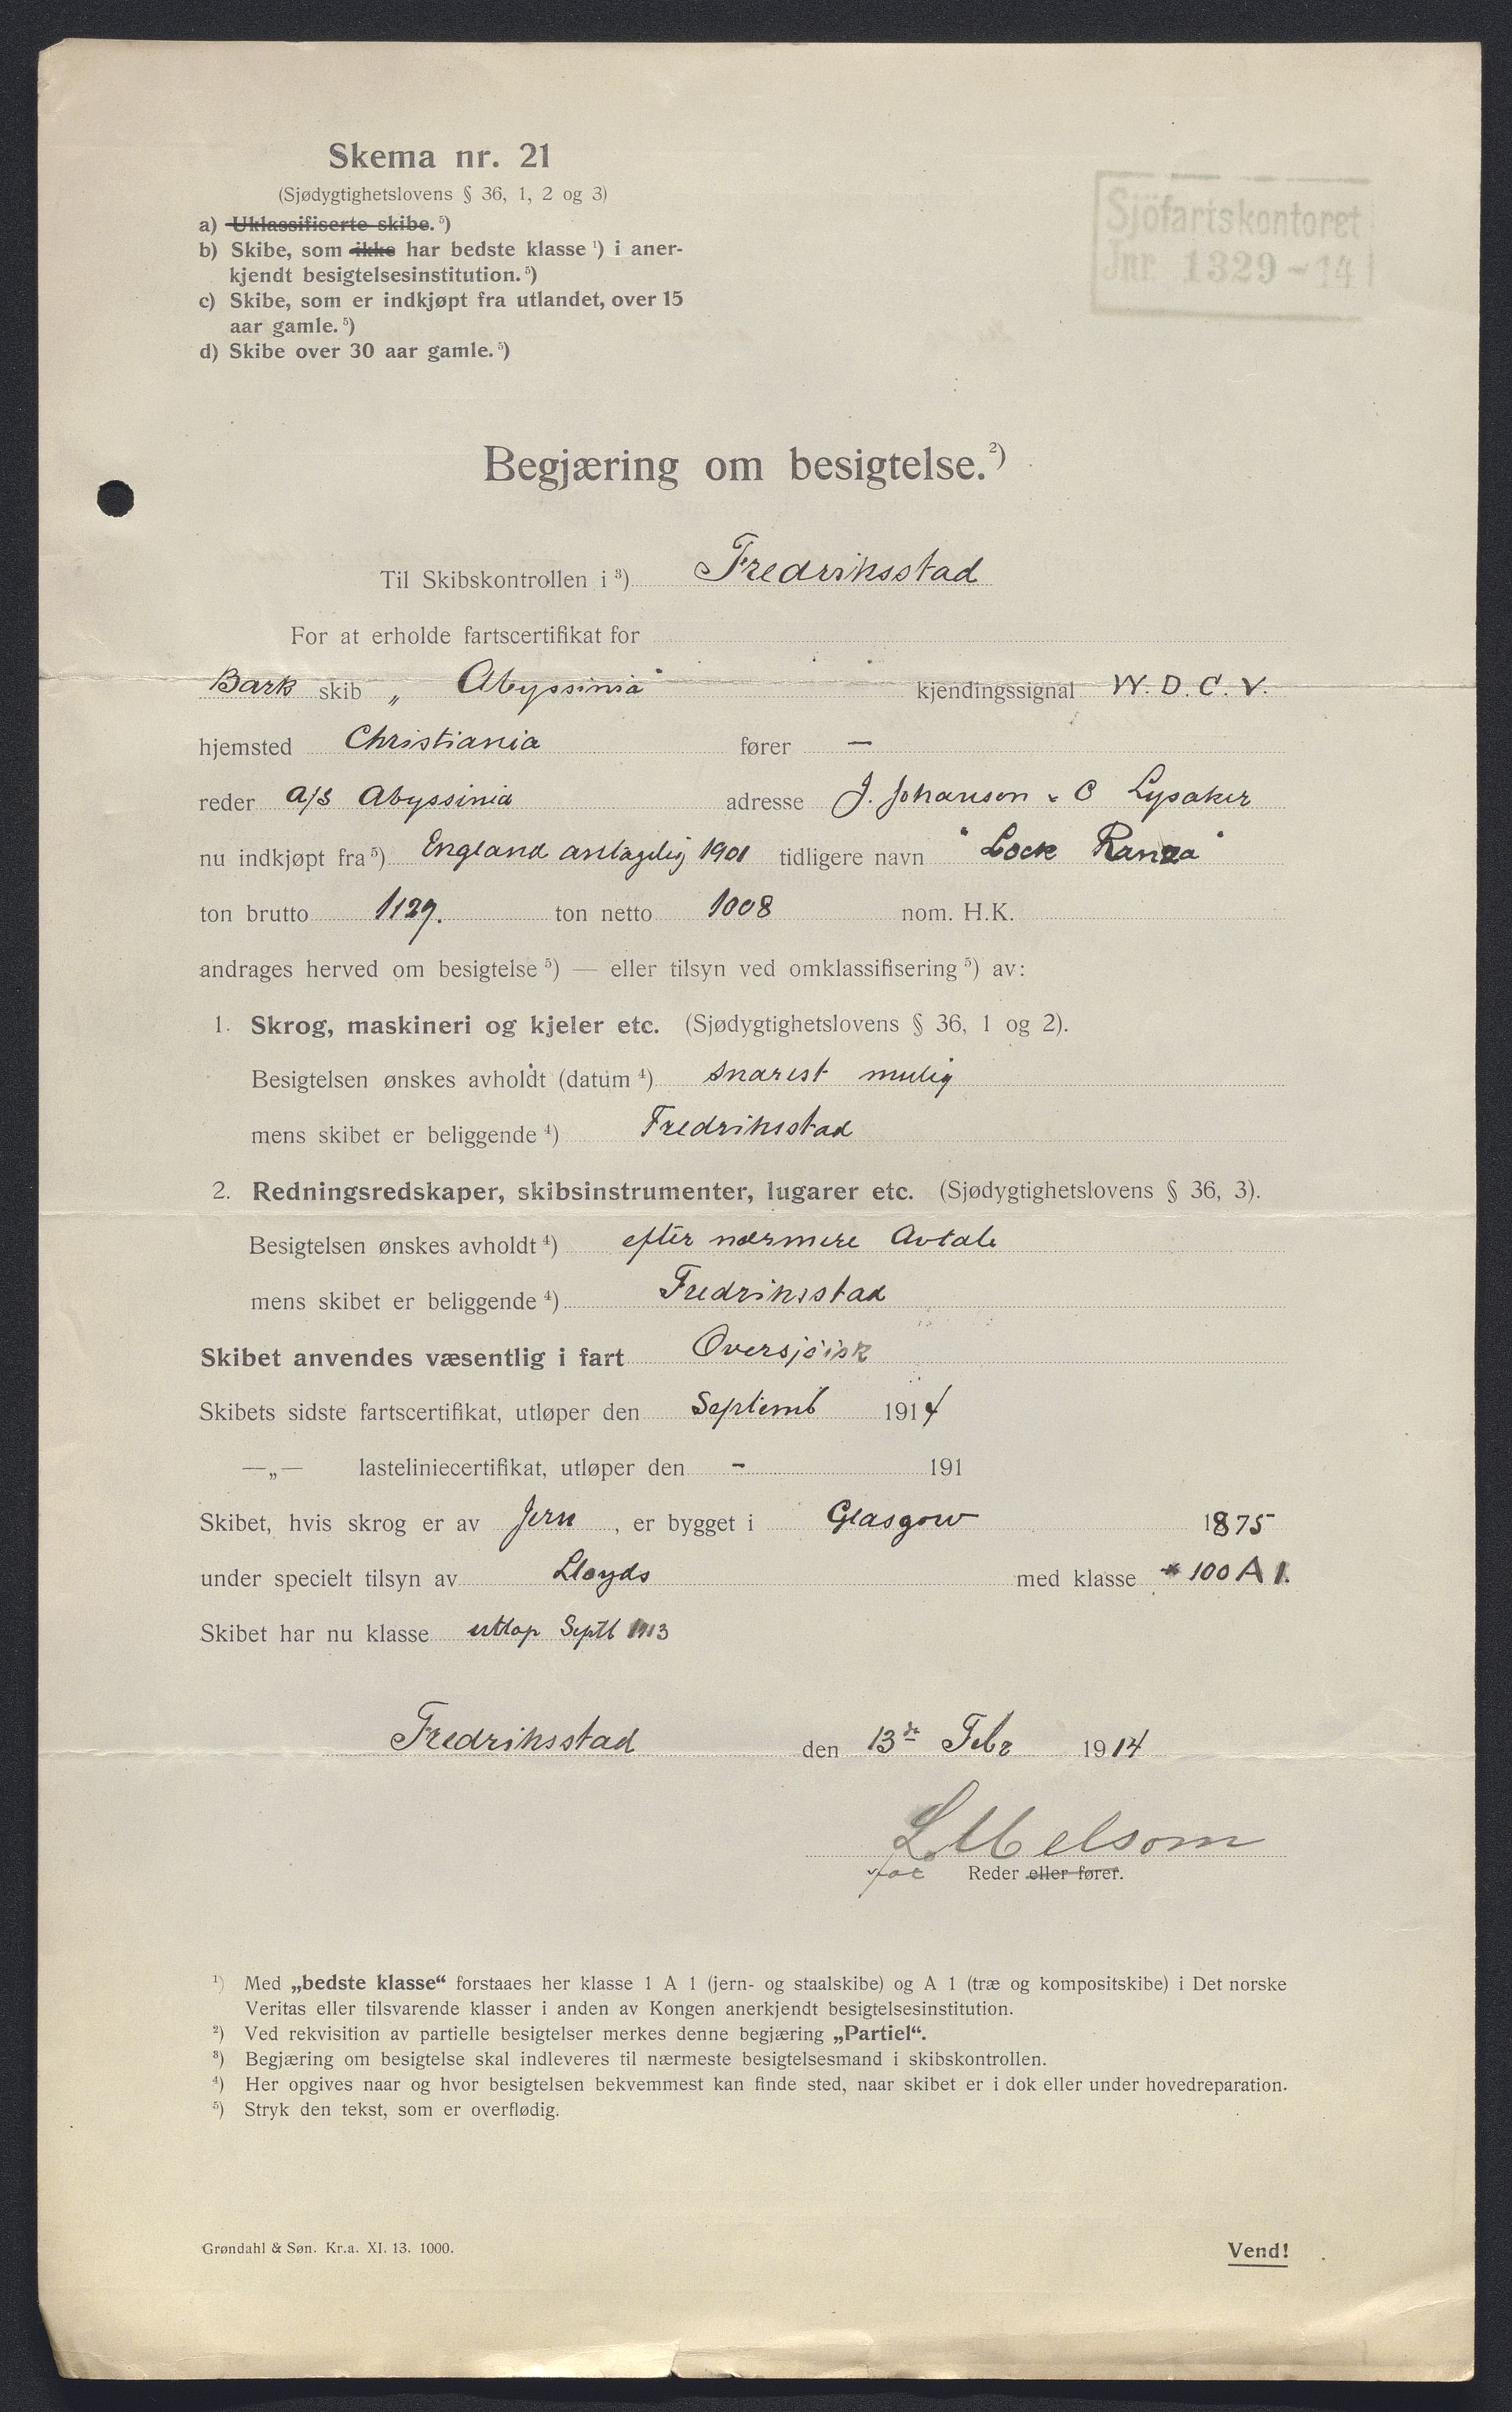 Skema nr. 21
(Sjødygtighetslovens § 36, 1, 2 og 3)
a) Uklassifiserte skibe. ⁵)
b) Skibe, som ikke har bedste klasse ¹) i aner-
kjendt besigtelsesinstitution. ⁵)
c) Skibe, som er indkjøpt fra utlandet, over 15
aar gamle. ⁵)
d) Skibe over 30 aar gamle. ⁵)
Sjöfartskontoret
Jnr. 1329-14
Begjæring om besigtelse.²)
Til Skibskontrollen i ³) Fredriksstad
For at erholde fartscertifikat for
Bark skib „ Abyssinia" kjendingssignal W. D. C. V.
hjemsted Christiania fører —
reder a/s Abyssinia adresse J. Johanson & C Lysaker
nu indkjøpt fra ⁵) England antagelig 1901 tidligere navn "Lock Ranza"
ton brutto 1129. ton netto 1008 nom. H.K.
andrages herved om besigtelse ⁵) — eller tilsyn ved omklassifisering ⁵) av:
1. Skrog, maskineri og kjeler etc. (Sjødygtighetslovens § 36, 1 og 2).
Besigtelsen ønskes avholdt (datum ⁴) snarest mulig
mens skibet er beliggende ⁴) Fredriksstad
2. Redningsredskaper, skibsinstrumenter, lugarer etc. (Sjødygtighetslovens § 36, 3).
Besigtelsen ønskes avholdt ⁴) efter nærmere Avtale
mens skibet er beliggende ⁴) Fredriksstad
Skibet anvendes væsentlig i fart Oversjøisk
Skibets sidste fartscertifikat, utløper den Septemb 1914
—„— lasteliniecertifikat, utløper den - 191
Skibet, hvis skrog er av Jern , er bygget i Glasgow 1875
under specielt tilsyn av Lloyds med klasse * 100 A 1.
Skibet har nu klasse utløp Septb 1913
Fredriksstad den 13de Febr 1914
L Melsom
for Reder eller fører.
¹) Med „bedste klasse“ forstaaes her klasse 1 A 1 (jern- og staalskibe) og A 1 (træ og kompositskibe) i Det norske
Veritas eller tilsvarende klasser i anden av Kongen anerkjendt besigtelsesinstitution.
²) Ved rekvisition av partielle besigtelser merkes denne begjæring „Partiel“.
³) Begjæring om besigtelse skal indleveres til nærmeste besigtelsesmand i skibskontrollen.
⁴) Her opgives naar og hvor besigtelsen bekvemmest kan finde sted, naar skibet er i dok eller under hovedreparation.
⁵) Stryk den tekst, som er overflødig.
Grøndahl & Søn. Kr.a. XI. 13. 1000.
Vend!